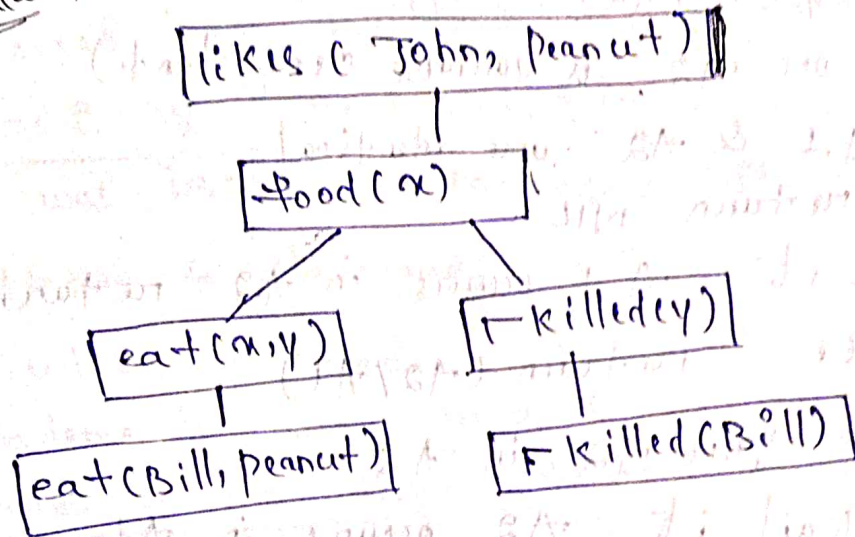 likes ( John, Peanut)
food (x)
eat (x,y)
killed(y)
eat (Bill, Peanut)
killed (Bill)